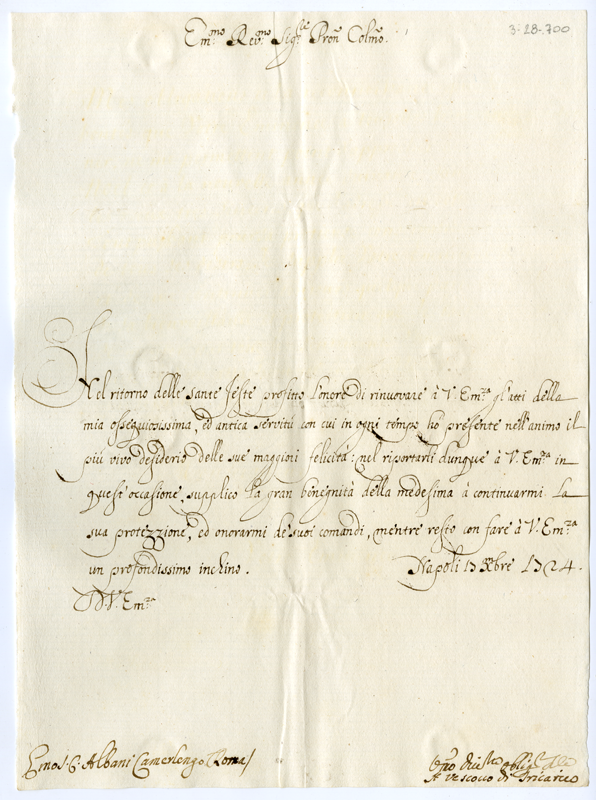 Em.mo Rev.mo Sig.re Pron Colmo.
3-28-700
Nel ritorno delle sante feste profitto l'onore di rinuovare à V. Em.za gl'atti della
mia ossequiosissima, ed antica servitù con cui in ogni tempo hò presente nell'animo il
più vivo desiderio delle sue maggiori felicità: nel riportarli dunque à V. Em.za in
quest'occasione, supplico la gran benignità della medesima à continuarmi la
sua protezzione, ed onorarmi de suoi comandi, mentre resto con fare à V. Em.za
un profondissimo inchino. Napoli 13 Xbre 1724.
D V. Em.za
Emo S. C. Albani Camerlengo Roma/
Vescovo di Tricarico